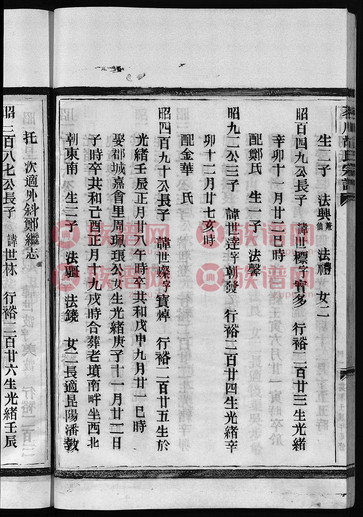 生二子 法興 法禮 女二
昭四百九公長子 諱世標字賓多 行裕二百廿三生光緒
辛卯十一月廿一巳時
配鄭氏 生一子 法馨
昭九二公三子 諱世達字朝發 行裕二百廿四生光緒辛
卯十二月廿七亥時
配金華 氏
昭四百九公長子 諱世燦字寶焯 行裕二百廿五生於
光緒壬辰正月十八午時卒共和戊申九月廿一巳時
娶郡城嘉會里周珮瑔公女生光緒庚子十一月廿二日
子時卒共和己酉正月十九戌時合葬老墳南畔坐西北
朝東南 生二子 法驪 法錢 女二長適昆陽潘敦
托 次適外斜鄭繼志
昭三百八七公長子 諱世林 行裕二百廿六生光緒壬辰